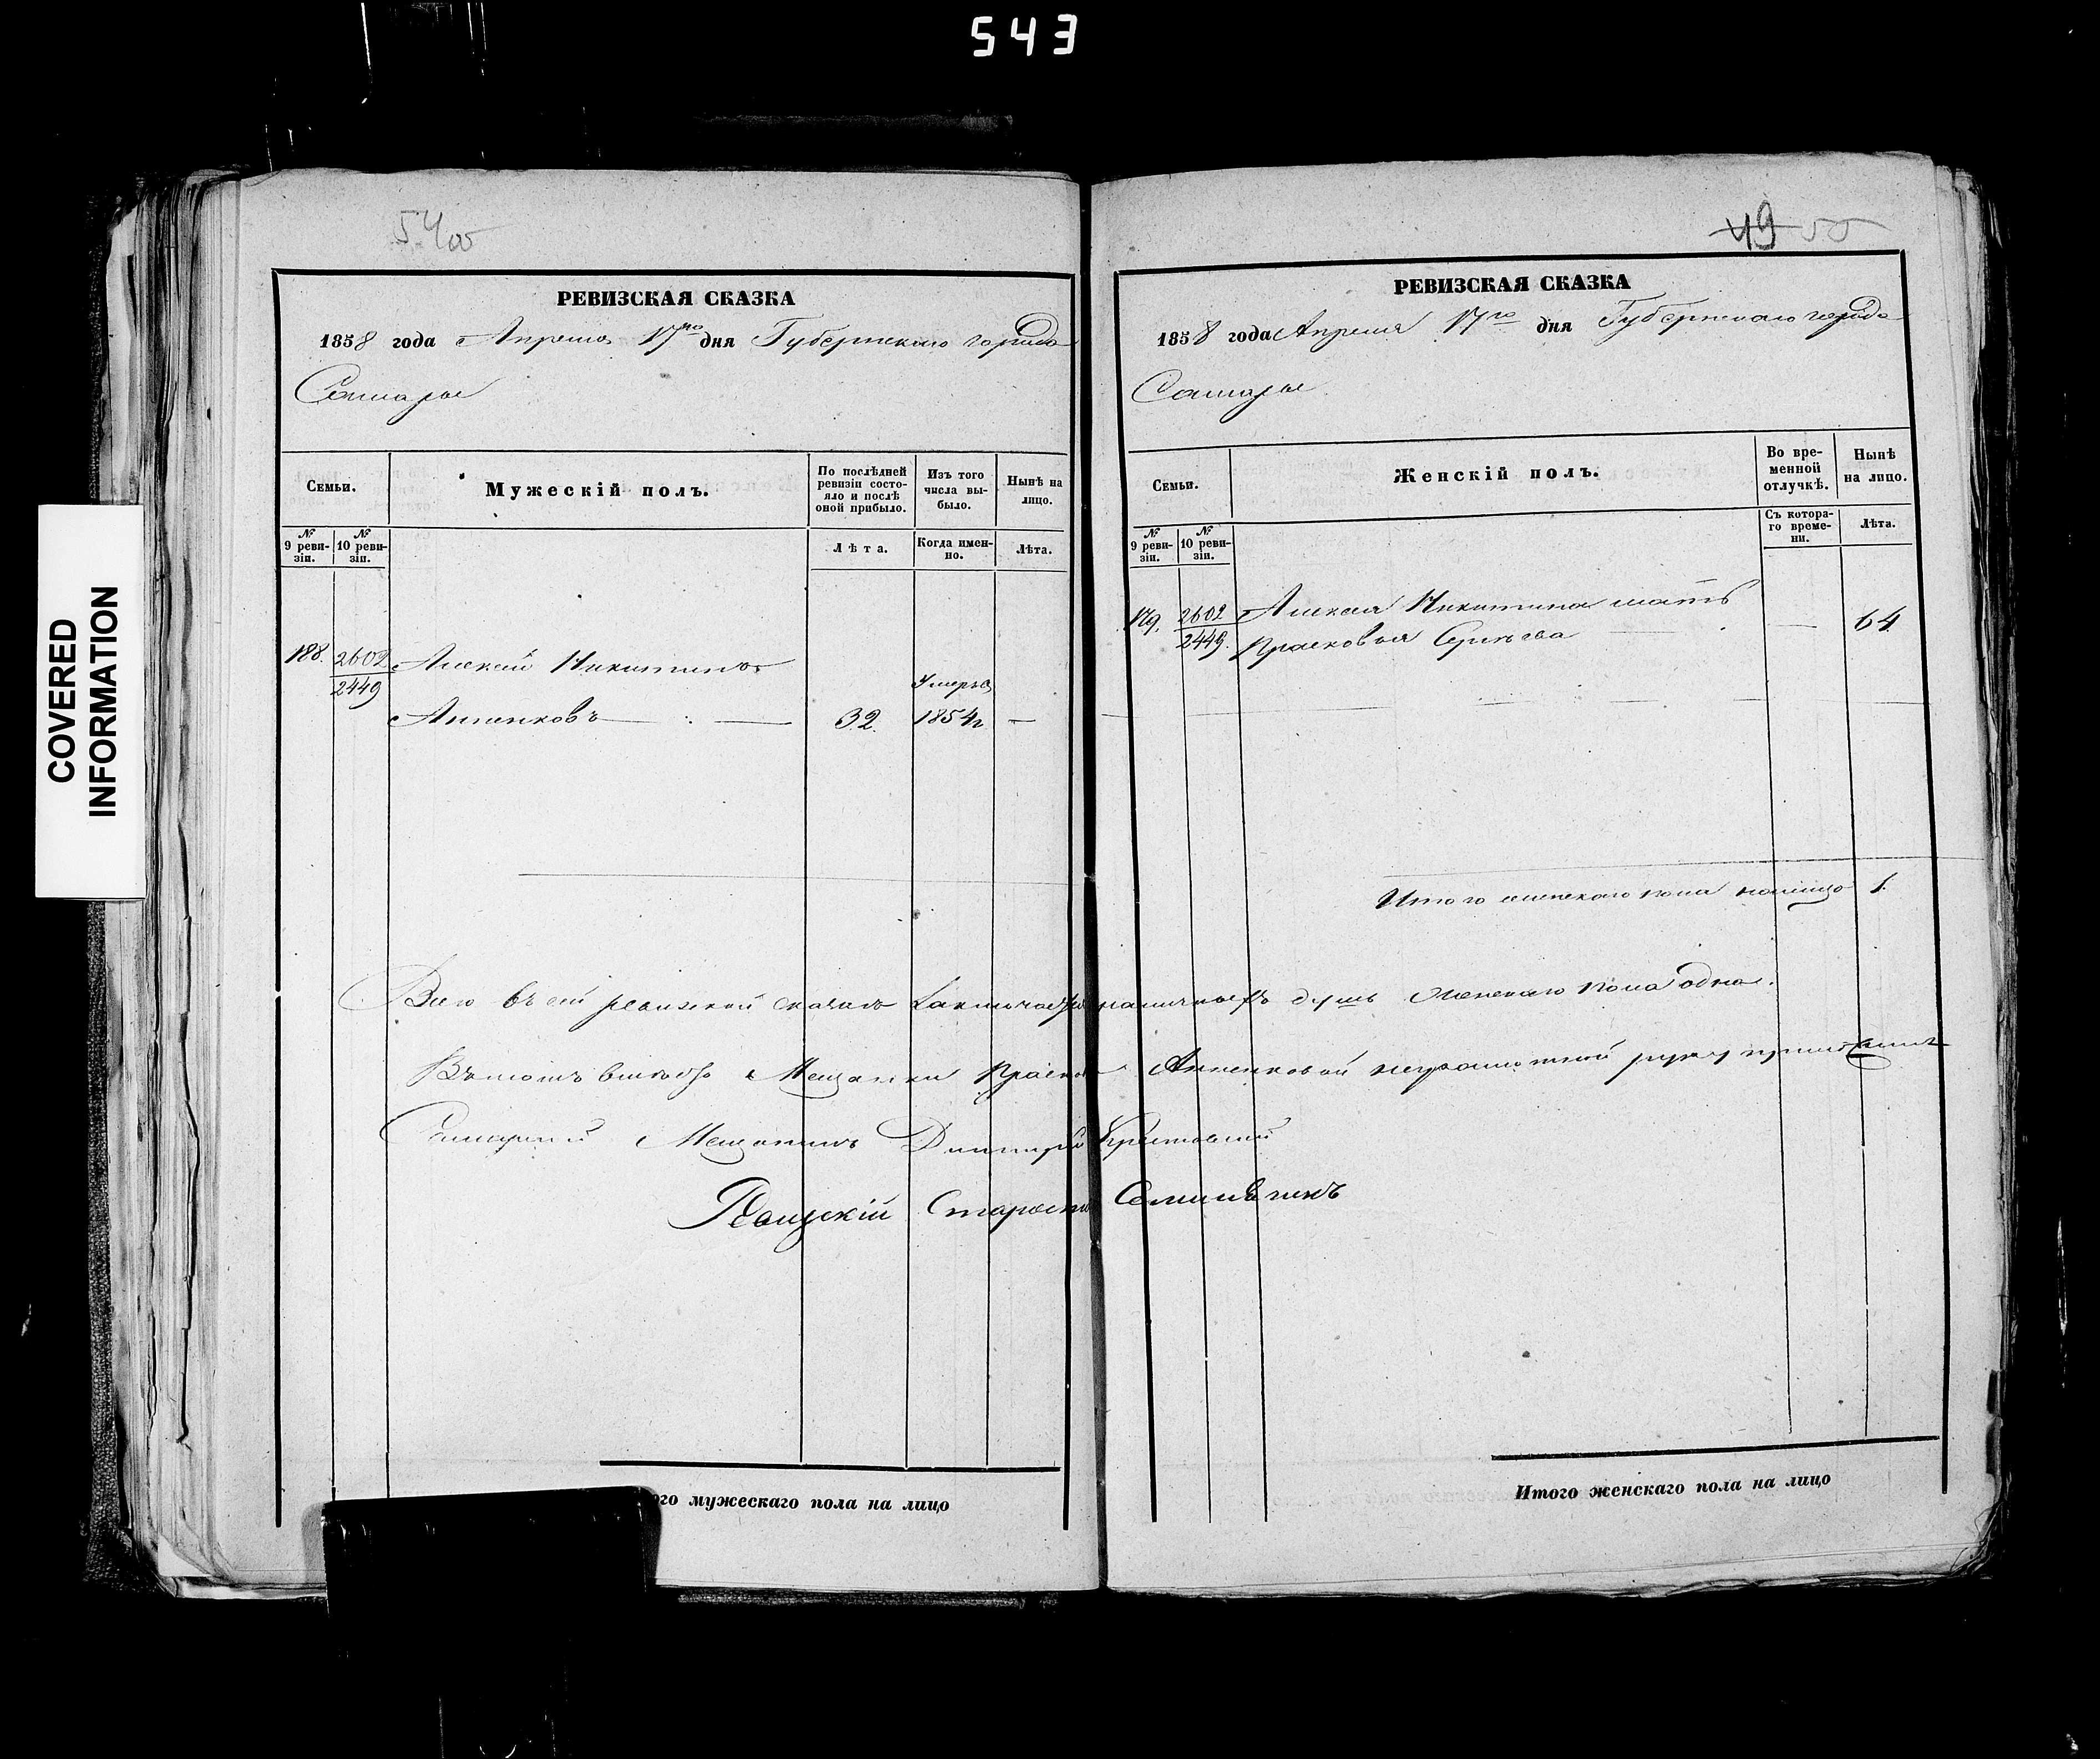 543
COVERED
INFORMATION
54об
РЕВИЗСКАЯ СКАЗКА
1858 года Апреля 17го дня Губернскаго города
Самары
Семьи.
Мужескій полъ.
По послѣдней ревизіи состояло и послѣ оной прибыло.
Изъ того числа выбыло.
Нынѣ на лицо.
№ 9 ревизіи.
№ 10 ревизіи.
Лѣта.
Когда именно.
Лѣта.
188. 2602 Алексей Никитинъ
2449 Умеръ
Анненковъ — 32. 1854г. —
49 55
РЕВИЗСКАЯ СКАЗКА
1858 года Апреля 17го дня Губернскаго города
Самары
Семьи.
Женскій полъ.
Во временной отлучкѣ.
Нынѣ на лицо.
№ 9 ревизіи.
№ 10 ревизіи.
Съ котораго времени.
Лѣта.
179. 2602 Алексея Никитина мать
2449. Прасковья — 64
Итого женскаго пола налицо 1.
Всего въ сей ревизской сказке заключается наличныхъ душъ женскаго пола одна.
Въ томъ вместо Мещанки Анненковой неграмотной руку приложилъ
Самарский Мещанинъ Дмитрий
Староста
Итого мужескаго пола на лицо
Итого женскаго пола на лицо